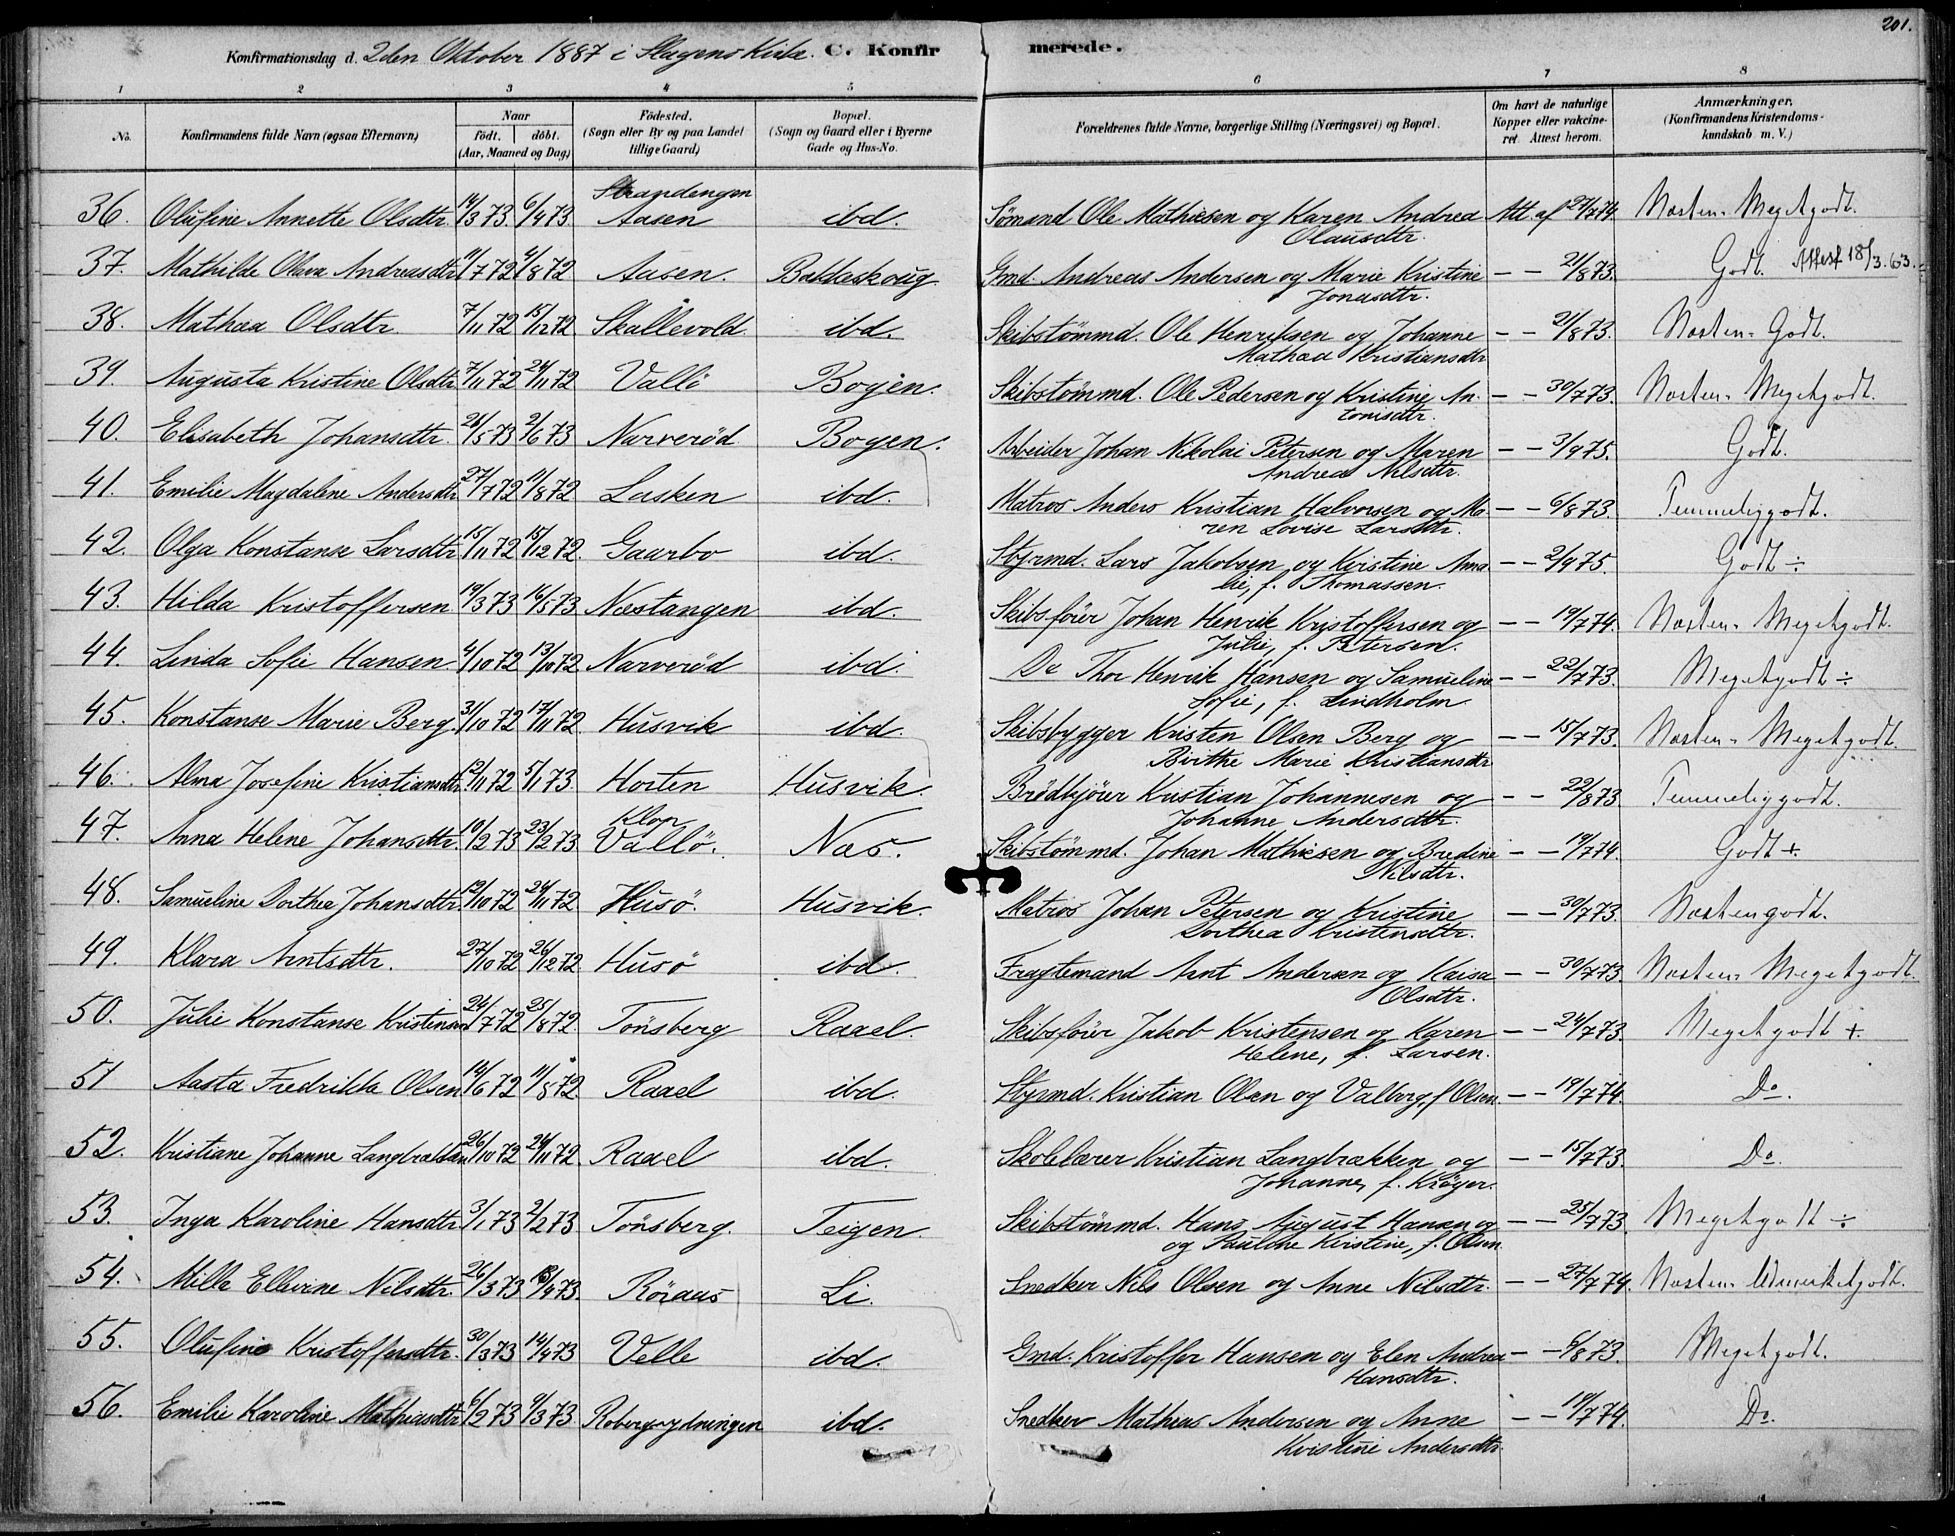 201.
Konfirmationsdag d. 2den Oktober 1887 i Slagens Kirke. C. Konfirmerede.
1 2 3 4 5 6 7 8
No. Konfirmandens fulde Navn (ogsaa Efternavn) Naar födt. döbt. (Aar, Maaned og Dag) Födested. (Sogn eller By og paa Landet tillige Gaard) Bopæl. (Sogn og Gaard eller i Byerne Gade og Hus-No. Forældrenes fulde Navne, borgerlige Stilling (Næringsvei) og Bopæl. Om havt de naturlige Kopper eller vakcineret. Attest herom. Anmærkninger. (Konfirmandens Kristendomskundskab m. V.)
36. Olufine Annette Olsdtr. 14/3 73. 6/4 73. Strandengen Aasen ibd. Sömand Ole Mathisen og Karen Andrea Olausdtr. Att. af 27/7 74. Næsten Megetgodt.
37. Mathilde Olava Andreasdtr 11/7 72 4/8 72 Aasen. Bakkeskoug Gmd. Andreas Andersen og Marie Kristine Jonasdtr. — — 21/8 73. Godt. Attest 18/3.63.
38. Mathea Olsdtr 7/11 72 15/12 72 Skallevold ibd. Skibstömmd. Ole Henriksen og Johanne Mathea Kristiansdtr — — 21/8 73. Næsten Godt.
39. Augusta Kristine Olsdtr 7/11 72 24/11 72 Vallö Bogen. Skibstömmd. Ole Pedersen og Kristine Antonisdtr. — — 30/7 73. Næsten Megetgodt.
40. Elisabeth Johansdtr. 21/5 73 2/6 73 Narveröd Bogen. Arbeider Johan Nikolai Petersen og Maren Andrea Nilsdtr. — — 3/9 75. Godt.
41. Emilie Magdalene Andersdtr 27/7 72 11/8 72 Lasken ibd. Matros Anders Kristian Halvorsen og Maren Lovise Larsdtr. — — 6/8 73. Temmeliggodt.
42. Olga Konstanse Larsdtr 15/11 72 15/12 72. Gaarbo ibd. Styrmd. Lars Jakobsen og Kristine Amalie, f. Thomassen. — — 2/9 75. Godt ÷
43. Hilda Kristoffersen 19/3 73 16/5 73. Næstangen ibd. Skibsförer Johan Henrik Kristoffersen og Julie, f. Petersen. — — 19/7 74. Næsten Megetgodt.
44. Linda Sofie Hansen 4/10 72 13/10 72 Narveröd ibd. Do Thor Henrik Hansen og Samueline Sofie, f. Lindholm — — 22/7 73. Megetgodt ÷
45. Konstanse Marie Berg. 31/10 72 17/11 72. Husvik ibd. Skibsbygger Kristen Olsen Berg og Birthe Marie Kristiansdtr — — 15/7 73. Næsten Megetgodt
46. Alma Josefine Kristiansdtr. 12/11 72 5/1 73. Horten Husvik. Brödkjörer Kristian Johannesen og Johanne Andersdtr. — — 22/8 73 Temmeliggodt.
47. Anna Helene Johansdtr. 10/2 73 23/2 73 Klop Vallö. Næs. Skibstömmd. Johan Mathisen og Bredine Nilsdtr. — — 19/7 74. Godt +.
48. Samueline Dorthea Johansdtr. 12/10 72 24/11 72. Husö. Husvik. Matros Johan Petersen og Kristine Dorthea Kristensdtr. — — 30/7 73. Næstengodt.
49. Klara Arntsdtr. 27/10 72 26/12 72 Husö ibd. Fragtemand Arnt Andersen og Kaisa Olsdtr. — — 30/7 73. Næsten Megetgodt.
50. Julie Konstanse Kristensen 24/7 72 25/8 72. Tönsberg Raael. Skibsförer Jakob Kristensen og Karen Helene, f. Larsen. — — 24/7 73. Megetgodt +.
51 Aasta Fredrikke Olsen 14/6 72 11/8 72. Raael ibd. Styrmd. Kristian Olsen og Valborg, f Olsen. — — 19/7 74. Do.
52. Kristiane Johanne Langbrækken 26/10 72 24/11 72. Raael ibd. Skolelærer Kristian Langbrækken og Johanne, f. Kröger. — — 15/7 73. Do.
53. Inga Karoline Hansdtr. 3/1 73 2/2 73. Tönsberg. Teigen. Skibstömmd. Hans August Hansen og og Pauline Kristine, f. Olsen — — 25/7 73. Megetgodt ÷
54. Milla Ellevine Nilsdtr. 26/3 73 13/4 73. Röraas Li. Snedker Nils Olsen og Anne Nilsdtr. — — 27/7 74. Næsten Udmerketgodt.
55. Olufine Kristoffersdtr. 30/3 73 14/4 73 Velle ibd. Gmd. Kristoffer Hansen og Elen Andrea Hansdtr. — — 6/8 73. Megetgodt.
56. Emilie Karoline Mathiasdtr 6/2 73 9/3 73. Robergrydningen ibd. Snedker Mathias Andersen og Anne Kristine Andersdtr. — — 19/7 74. Do.